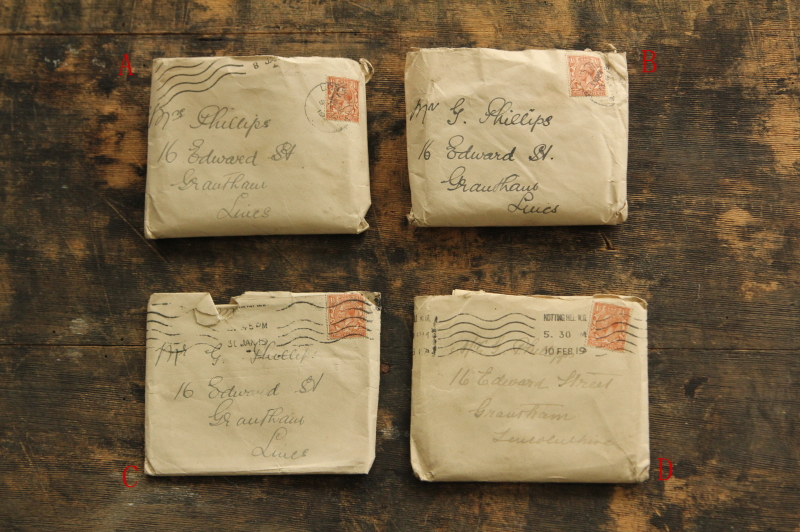 A
8 JA
Mrs Phillips
16 Edward St
Grantham
Lincs
B
Mrs G. Phillips
16 Edward St.
Grantham
Lincs
C
PM
31 JAN 19
Mrs G. Phillips
16 Edward St
Grantham
Lincs
D
NOTTING HILL W.11
5. 30
10 FEB 19
16 Edward Street
Grantham
Lincolnshire